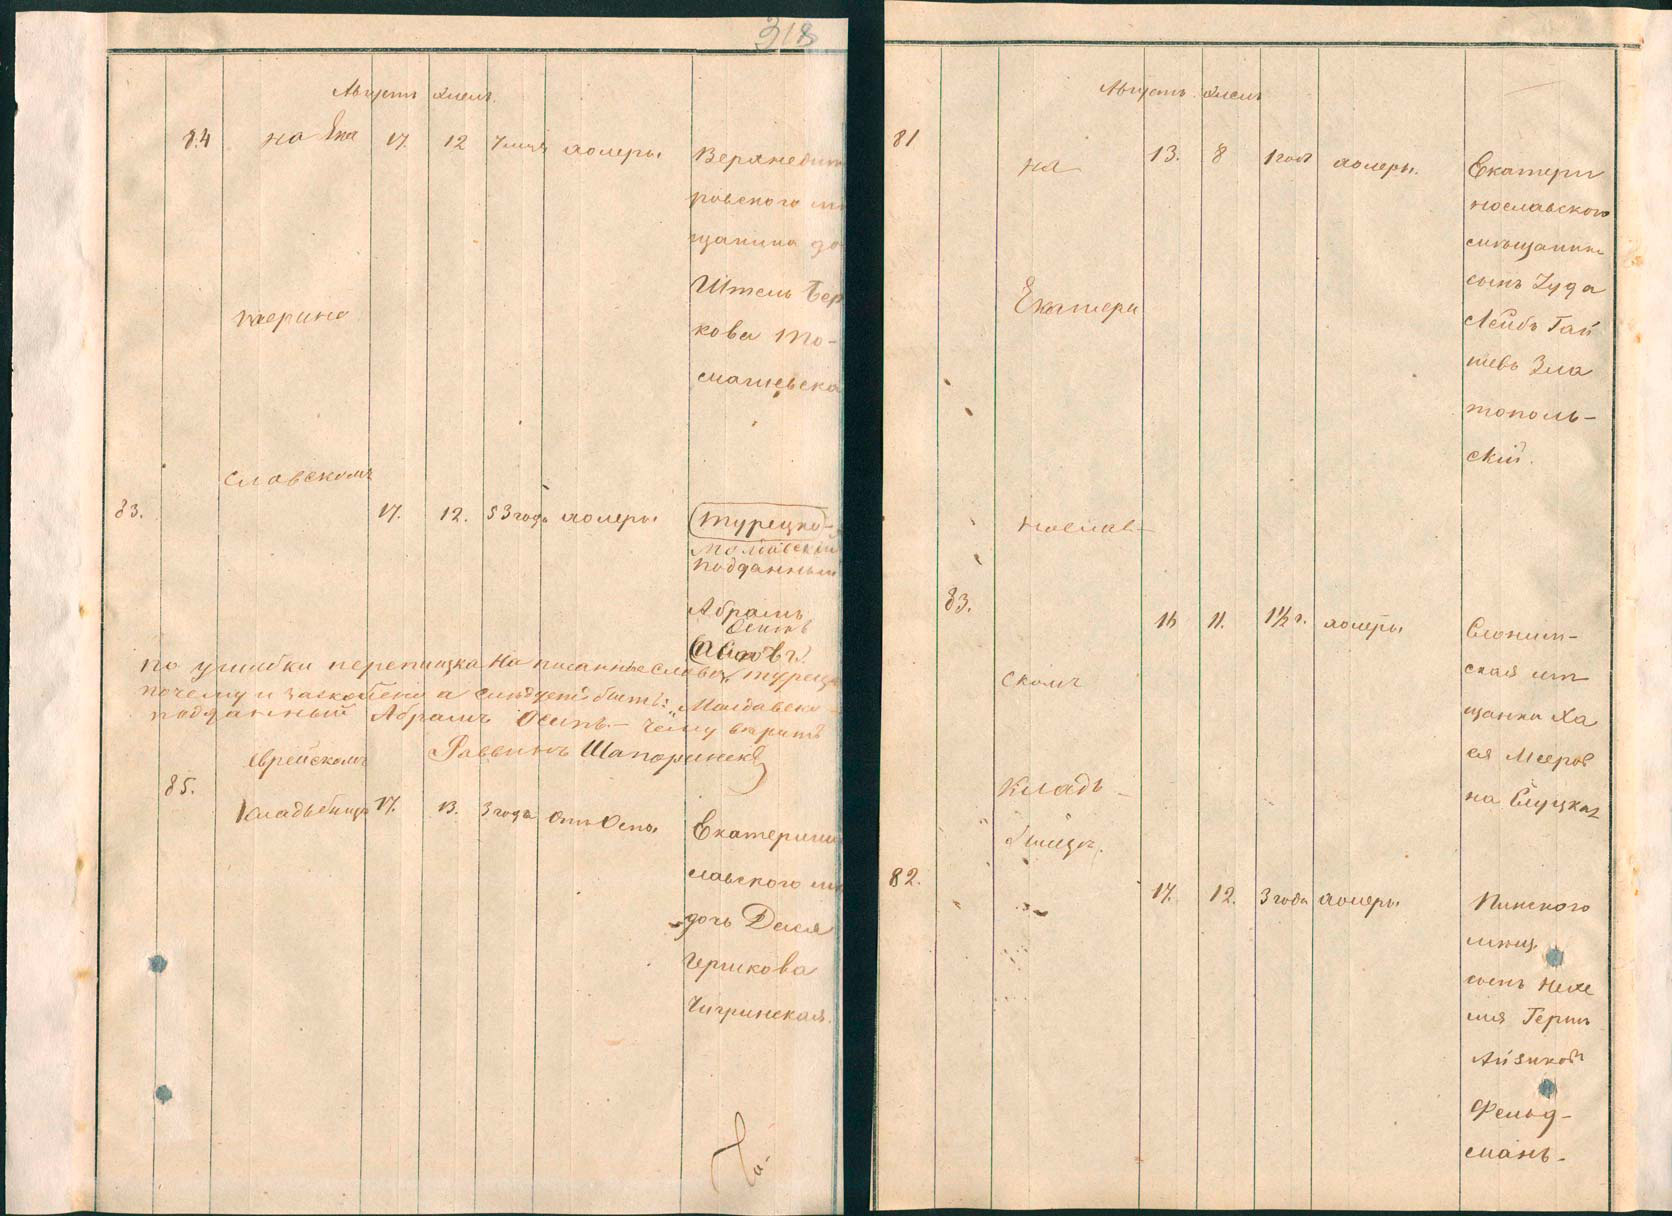 318
Августъ
84 на Ека 17. 12 холеры
Верхнедни
ровского
щанина
Штель Бер
терино
кова То-
машевска
славскомъ
83. 17. 12. 53 года холеры
Турецко-
Молдавский
подданный
Абрамъ
Осипъ
по ошибки переписка написанные слова турецко
почему и заскоблено а следуетъ быть: „Молдавско-
подданный Абрамъ Осипъ.— Чему верить
Раввинъ Шапоринский
еврейскомъ
85.
кладбище 17. 13. 3 года отъ Оспы
Екатерино
славского
дочь Дися
Гершкова
Чигринская.
Августъ
81
на 13. 8 1 годъ холеры.
Екатери
нославского
мещанина
сынъ Іуда
Лейбъ Гай
шевъ Зла
Екатери
тополь-
ский.
нослав-
83.
16 11. 1½ г. холеры
Слоним-
ская ме
щанка Ха
ся Мееров
на Слуцкая
скомъ
кладъ-
бище.
82.
17. 12. 3 года холеры
Пинского
мещ.
сынъ Нехе
мия Герш
Айзиковъ
Фельд-
манъ.